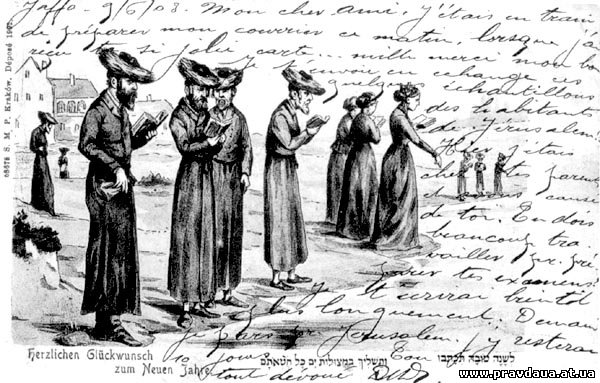 Jaffo. 9/6/03. Mon cher ami, j'étais en train
de préparer mon courrier ce matin, lorsque j'ai
reçu ta si jolie carte. mille merci mon
Je t'envoie en échange ces
quelques échantillons
des habitants
de Jérusalem.
Hier j'étais
chez tes parents
cause
de toi. En dois
beaucoup tra
vailler pr. pré
parer tes examens
Je t'écrirai bientôt
plus longuement. Demain
je pars pr Jerusalem. J'y resterai
10 jours. Ton
tout dévoué
68678 S. M. P. Kraków. Déposé 1902.
Herzlichen Glückwunsch
zum Neuen Jahre
ותשליך במצולות ים כל חטאתם
לשנה טובה תכתבו
www.pravdaua.at.ua